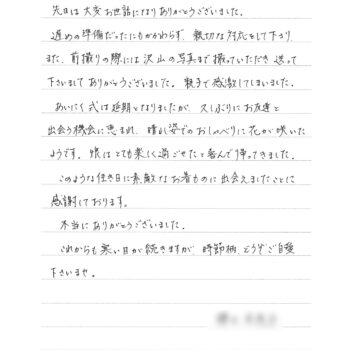 先日は大変お世話になりありがとうございました。
遅めの準備だったにもかかわらず、親切な対応をして下さり
また、前撮りの際には沢山の写真まで撮っていただき送って
下さいましてありがとうございました。親子で感激してしまいました。
あいにく式は延期となりましたが、久しぶりにお友達と
出会う機会に恵まれ、晴れ姿でのおしゃべりに花が咲いた
ようです。娘はとても楽しく過ごせたと喜んで帰ってきました。
このような佳き日に素敵なお着ものに出会えましたことに
感謝しております。
本当にありがとうございました。
これからも寒い日が続きますが、時節柄、どうぞご自愛
下さいませ。